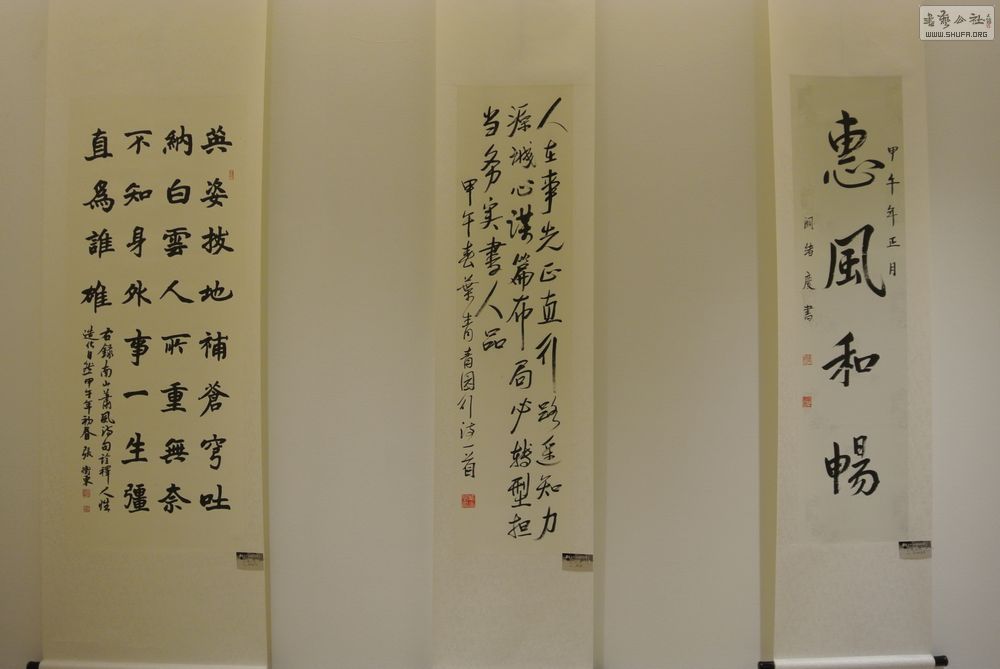 英姿拔地補蒼穹吐
納白雲人所重無奈
不知身外事一生彊
直為誰雄
右錄南山蕭風詩句詮釋人性
造化自然甲午年初春張衛東
人在事先正直行路遥知力
源诚心謀篇布局必轉型担
当务实書人品
甲午春葉青青园行诗一首
甲午年正月
惠風和暢
書
書藝公社
WWW.SHUFA.ORG